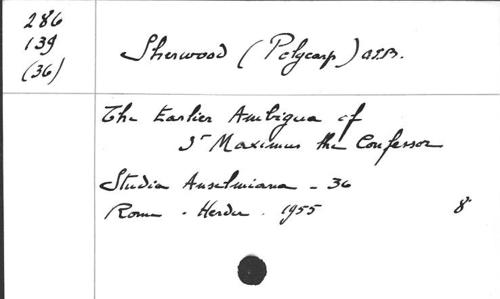 286
139
(36)
Sherwood (Polycarp) O.S.B.
The Earlier Ambigua of
St Maximus the Confessor
Studia Anselmiana - 36
Rome . Herder . 1955 8